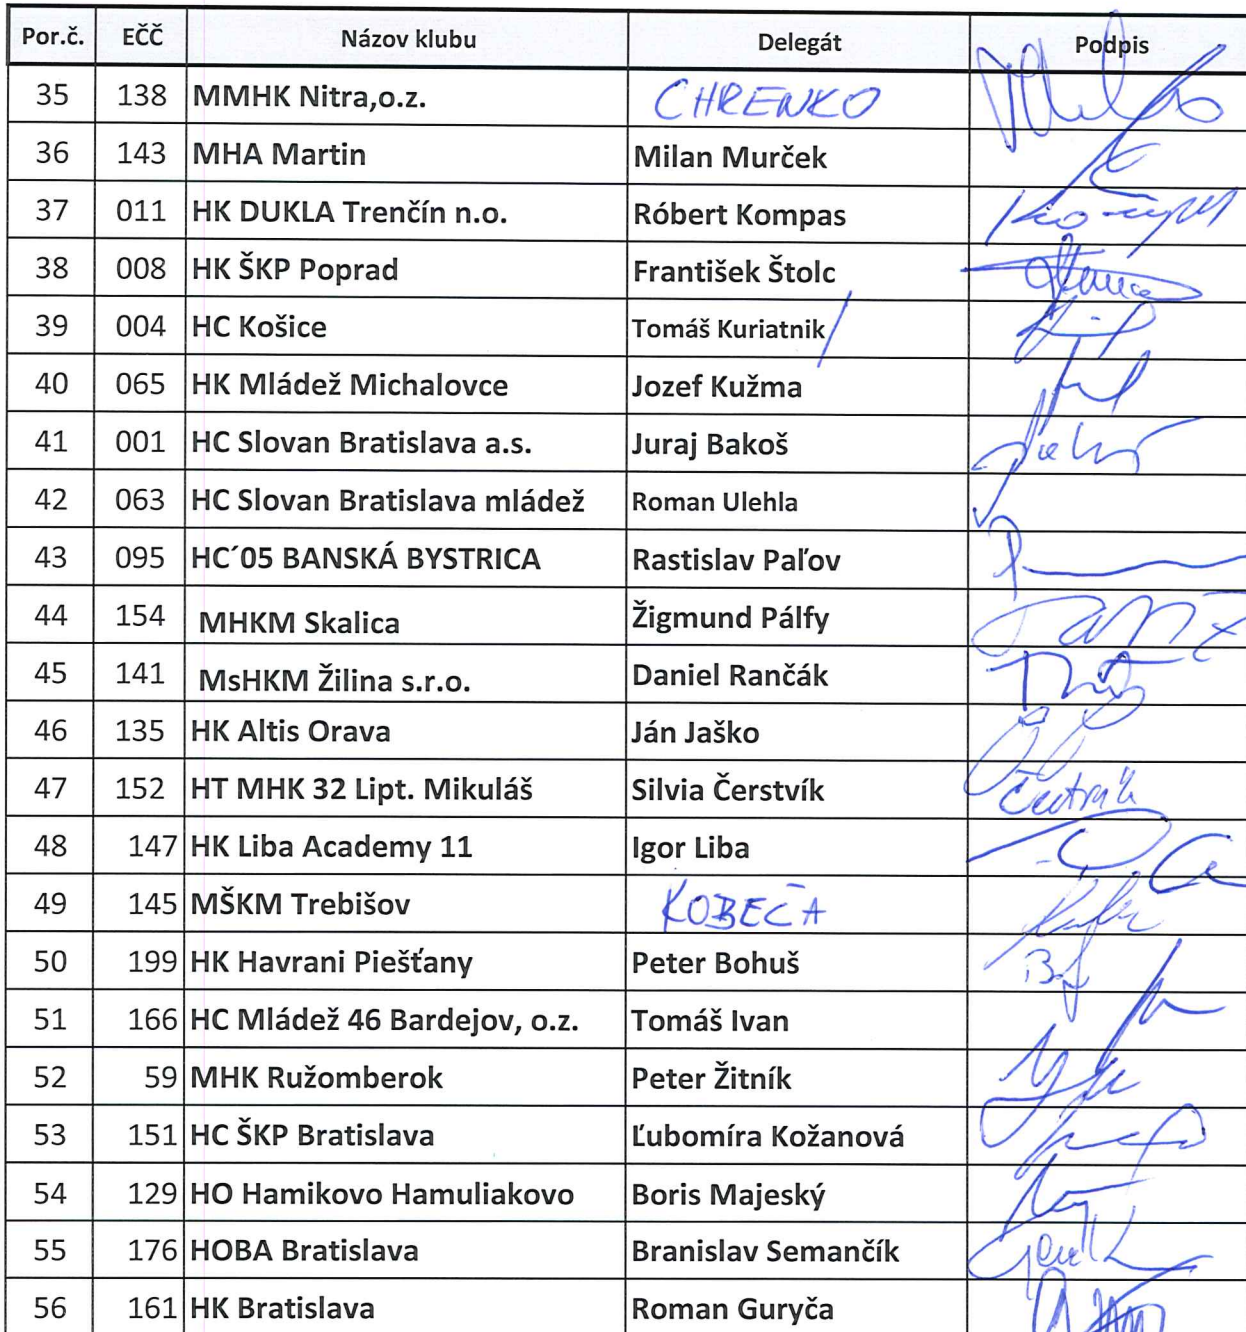 Por.č. EČČ Názov klubu Delegát Podpis
35 138 MMHK Nitra,o.z. CHRENKO
36 143 MHA Martin Milan Murček
37 011 HK DUKLA Trenčín n.o. Róbert Kompas
38 008 HK ŠKP Poprad František Štolc
39 004 HC Košice Tomáš Kuriatnik
40 065 HK Mládež Michalovce Jozef Kužma
41 001 HC Slovan Bratislava a.s. Juraj Bakoš
42 063 HC Slovan Bratislava mládež Roman Ulehla
43 095 HC´05 BANSKÁ BYSTRICA Rastislav Paľov
44 154 MHKM Skalica Žigmund Pálfy
45 141 MsHKM Žilina s.r.o. Daniel Rančák
46 135 HK Altis Orava Ján Jaško
47 152 HT MHK 32 Lipt. Mikuláš Silvia Čerstvík
48 147 HK Liba Academy 11 Igor Liba
49 145 MŠKM Trebišov KOBEČA
50 199 HK Havrani Piešťany Peter Bohuš
51 166 HC Mládež 46 Bardejov, o.z. Tomáš Ivan
52 59 MHK Ružomberok Peter Žitník
53 151 HC ŠKP Bratislava Ľubomíra Kožanová
54 129 HO Hamikovo Hamuliakovo Boris Majeský
55 176 HOBA Bratislava Branislav Semančík
56 161 HK Bratislava Roman Guryča